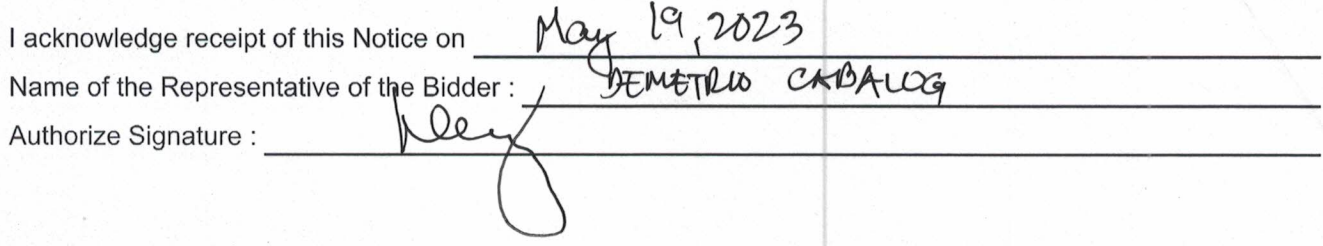 I acknowledge receipt of this Notice on May 19, 2023
Name of the Representative of the Bidder : DEMETRIO CABALOG
Authorize Signature :